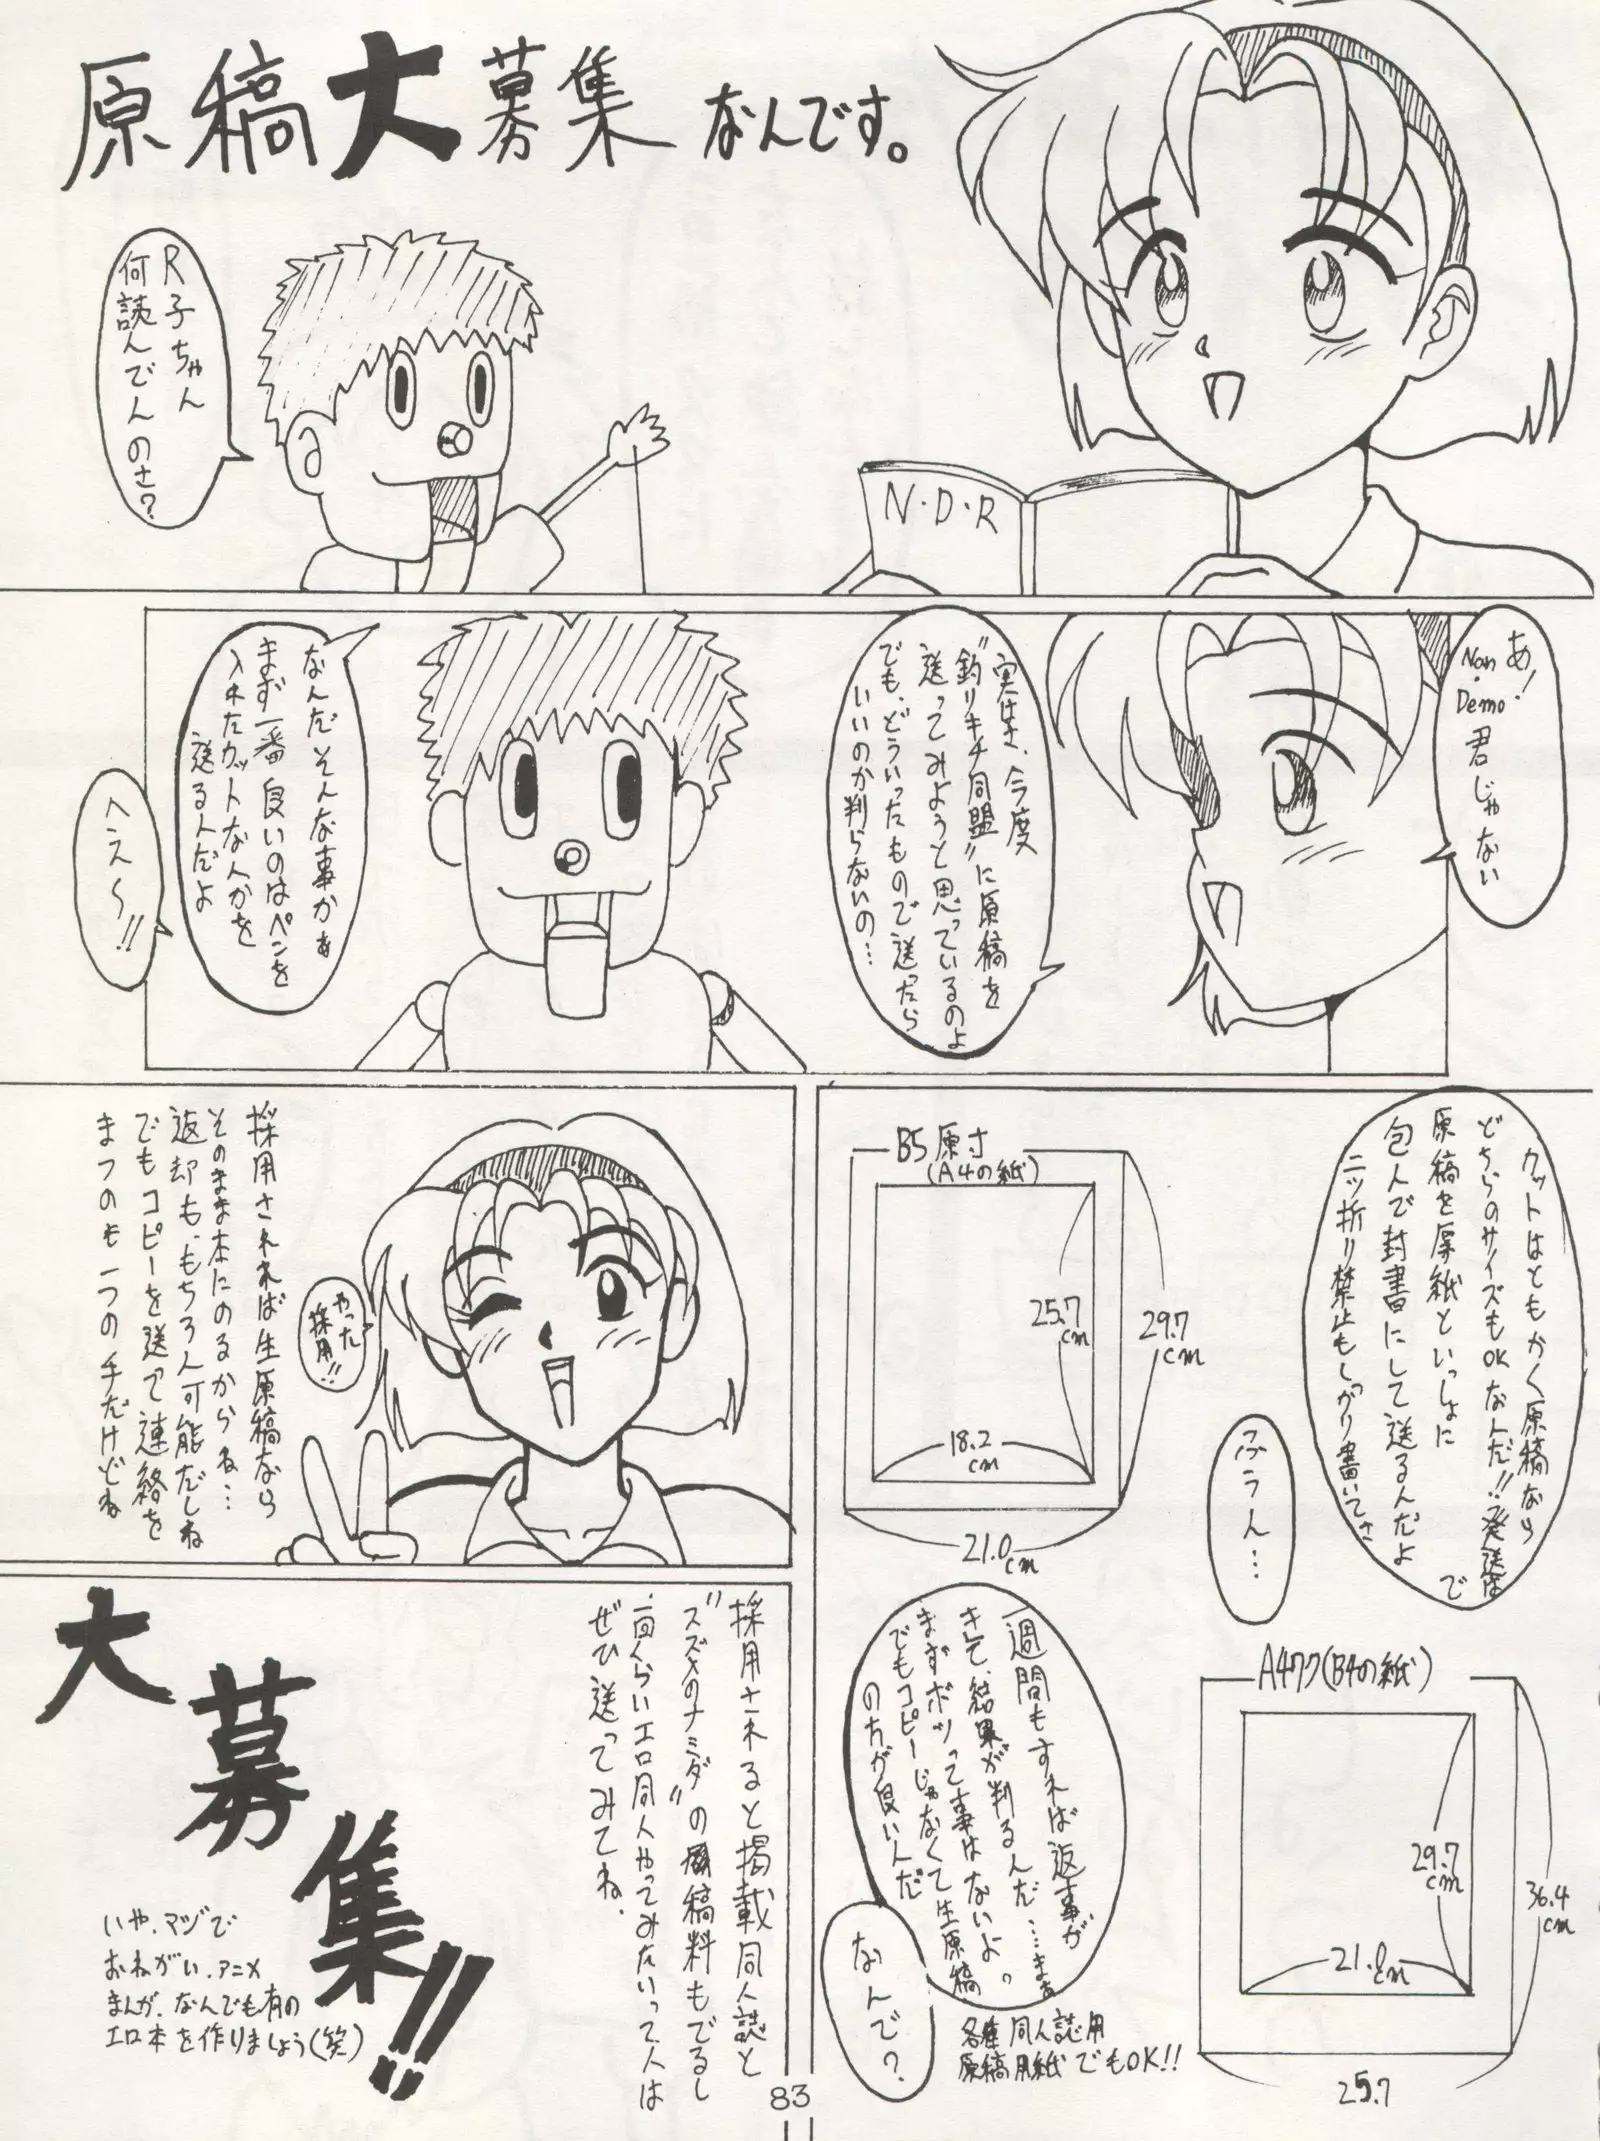 原稿大募集なんです。
R子ちゃん
何読んでんのさ?
N・D・R
あ!
Nan・
Demo
君じゃない
実はさ、今度
"釣りキチ同盟"に原稿を
送ってみようと思っているのよ
でも、どういったもので送ったら
いいのか判らないの…
なんだそんな事かぁ
まず一番良いのはペンを
入れたカットなんかを
送る人だよ
へえ〜!!
カットはともかく原稿なら
どちらのサイズもOKなんだ!!発送は
原稿を厚紙といっしょに
包んで封書にして送るんだよ
二ッ折り禁止もしっかり書いてさ
ふうん…
B5原寸
(A4の紙)
25.7cm
29.7cm
18.2cm
21.0cm
A4ワク(B4の紙)
29.7cm
36.4cm
21.0cm
25.7
各種同人誌用
原稿用紙でもOK!!
一週間もすれば返事が
きて、結果が判るんだ……まぁ
まずボツって事はないよ。
でもコピーじゃなくて生原稿
の方が良いんだ
なんで?
やった
採用!!
採用されれば生原稿なら
そのまま本にのるからね…
返却も、もちろん可能だしね
でもコピーを送って連絡を
まつのも一つの手だけどね
採用されると掲載同人誌と
"スズメのナミダ"の原稿料もでるし
一回くらいエロ同人やってみたいって人は
ぜひ送ってみてね.
大募集!!
いや、マジで
おねがい.アニメ
まんが、なんでも有の
エロ本を作りましょう(笑)
83